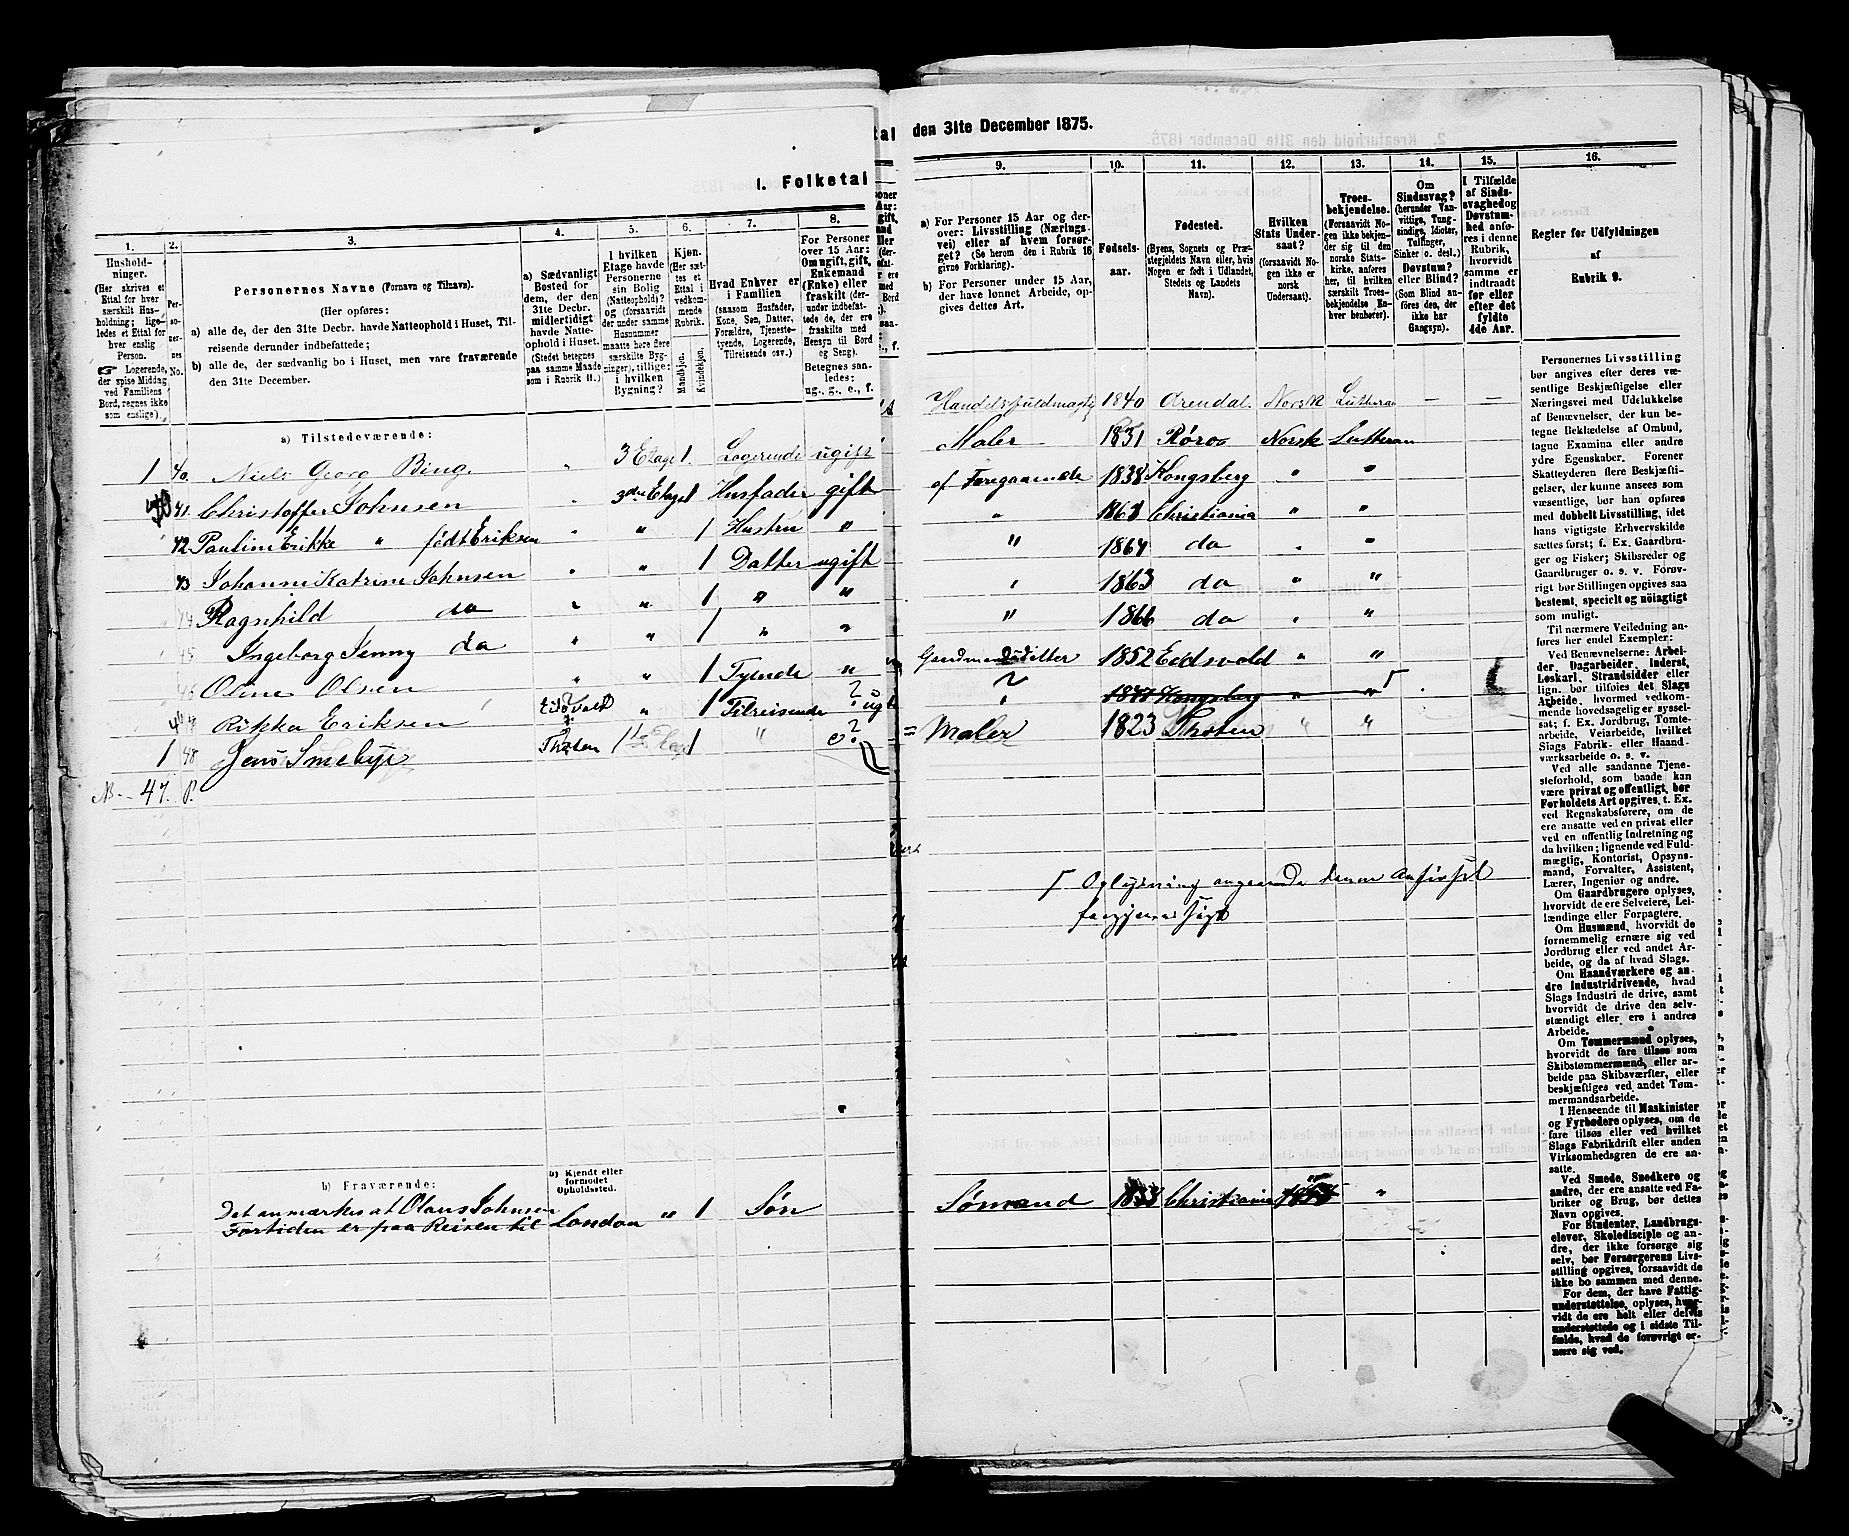 I. Folketal
den 31te December 1875.
1.
Husholdninger.
(Her skrives et
Ettal for hver
særskilt Husholdning; ligeledes
et Ettal for
hver enslig
Person.
Logerende,
der spise Middag
ved Familiens
Bord, regnes ikke
som enslige).
2.
Personernes
No.
3.
Personernes Navne (Fornavn og Tilnavn).
(Her opføres:
a) alle de, der den 31te Decbr. havde Natteophold i Huset, Tilreisende
derunder indbefattede;
b) alle de, der sædvanlig bo i Huset, men vare fraværende
den 31te December.
4.
a) Sædvanligt
Bosted for
dem, der den
31te Decbr.
midlertidigt
havde Natteophold
i Huset.
(Stedet betegnes
paa samme Maade
som i Rubrik 11.)
5.
I hvilken
Etage havde
Personerne
sin Bolig
(Natteophold)?
og (forsaavidt
der under samme
Husnummer
maatte høre flere
særskilte Bygninger),
tillige:
i hvilken
Bygning?
6.
Kjøn.
(Her sættes
et
Ettal i
vedkommende
Rubrik.
Mandkjøn.
Kvindekjøn.
7.
Hvad Enhver er
i Familien
(saasom Husfader,
Kone, Søn, Datter,
Forældre, Tjenestetyende,
Logerende,
Tilreisende osv.)
8.
For Personer
over 15 Aar:
Om ugift, gift,
Enkemand
(Enke) eller
fraskilt (derunder
indbefattede
de, der ere
fraskilte med
Hensyn til Bord
og Seng).
Betegnes saaledes:
ug., g., e., f.
9.
a) For Personer 15 Aar og derover:
Livsstilling (Næringsvei)
eller af hvem forsørget?
(Se herom den i Rubrik 16
givne Forklaring).
b) For Personer under 15 Aar,
der have lønnet Arbeide, opgives
dettes Art.
10.
Fødselsaar.
11.
Fødested.
(Byens, Sognets og Præstegjeldets
Navn eller, hvis
Nogen er født i Udlandet,
Stedets og Landets
Navn).
12.
Hvilken
Stats Undersaat?
(forsaavidt Nogen
ikke er
norsk
Undersaat).
13.
Troesbekjendelse.
(Forsaavidt
Nogen ikke bekjender
sig til den
norske Statskirke,
anføres
her, til hvilken
særskilt Troesbekjendelse
Enhver
benhører).
14.
Om
Sindssvag?
(herunder Vanvittige,
Tungsindige,
Idioter,
Tullinger,
Sinker o. desl.)
Døvstum?
eller Blind?
(Som Blind anføres
den, der
ikke har
Gangsyn).
15.
I Tilfælde
af Sindssvaghed
og
Døvstumhed
anføres
i denne
Rubrik,
hvorvidt
samme er
indtraadt
før eller
efter det
fyldte
4de Aar.
16.
Regler for Udfyldningen
af
Rubrik 9.
a) Tilstedeværende:
1 40. Niels Georg Bing 3 Etage 1. Logerende ugift Handelsfuldmægtig 1840 Arendal. Norsk Lutheran – –
41 Christoffer Johnsen 3die Etage 1 Husfader gift Maler 1831 Røros Norsk Lutheran
42 Pauline Erikke " født Eriksen " 1 Hustru " af Foregaaende 1838 Kongsberg " "
43 Johanne Katrine Johnsen " 1 Datter ugift " Christiania " "
44 Ragnhild da " 1 " " " 1864 da " "
45 Ingeborg Jenny da " 1 " " " 1863 da " "
46 Oline Olsen " 1 Tyende " 1866 da " "
Rikka Eriksen " 1 Tilreisende ? ug 1852 Eidsvold " "
? Kongsberg " "
1 48 Jens 1ste Etage 1 " e? Maler 1823 Thoten " "
47. P.
Oplysning angaaende denne
b) Fraværende:
b) Kjendt eller
formodet
Opholdssted.
Det anmærkes at Olaus Johnsen
Fortiden er paa Reisen til London " 1 Søn Sømand Christiania "
Personernes Livsstilling
bør angives efter deres væsentlige
Beskjæftigelse eller
Næringsvei med Udelukkelse
af Benævnelser, der kun betegne
Beklædelse af Ombud,
tagne Examina eller andre
ydre Egenskaber. Forener
Skatteyderen flere Beskjæftigelser,
der kunne ansees som
væsentlige, bør han opføres
med dobbelt Livsstilling, idet
hans vigtigste Erhvervskilde
sættes først; f. Ex. Gaardbruger
og Fisker; Skibsreder og
Gaardbruger o. s. v. Forøvrigt
bør Stillingen opgives saa
bestemt, specielt og nöiagtigt
som muligt.
Til nærmere Veiledning anføres
her endel Exempler:
Ved Benævnelserne: Arbeider,
Dagarbeider, Inderst,
Løskarl, Strandsidder eller
lign. bør tilføies det Slags
Arbeide, hvormed vedkommende
hovedsagelig er sysselsat;
f. Ex. Jordbrug, Tomtearbeide,
Veiarbeide, hvilket
Slags Fabrik- eller Haandværksarbeide
o. s. v.
Ved alle saadanne Tjenesteforhold,
som baade kan
være privat og offentligt, bør
Forholdets Art opgives, t. Ex.
ved Regnskabsførere, om de
ere ansatte ved en privat eller
ved en offentlig Indretning og
da hvilken; lignende ved Fuldmægtig,
Kontorist, Opsynsmand,
Forvalter, Assistent,
Lærer, Ingeniør og andre.
Om Gaardbrugere oplyses,
hvorvidt de ere Selveiere, Leilændinge
eller Forpagtere.
Om Husmænd, hvorvidt de
fornemmelig ernære sig ved
Jordbrug eller ved andet Arbeide,
og da af hvad Slags.
Om Haandværkere og andre
Industridrivende, hvad
Slags Industri de drive, samt
hvorvidt de drive den selvstændigt
eller ere i andres
Arbeide.
Om Tømmermænd oplyses,
hvorvidt de fare tilsøs som
Skibstømmermænd, eller arbeide
paa Skibsværfter, eller
beskjæftiges ved andet Tømmermandsarbeide.
I Henseende til Maskinister
og Fyrbødere oplyses, om de
fare tilsøs eller ved hvilket
Slags Fabrikdrift eller anden
Virksomhedsgren de ere ansatte.
Ved Smede, Snedkere og
andre, der ere ansatte ved Fabriker
og Brug, bør dettes
Navn opgives.
For Studenter, Landbrugselever,
Skoledisciple og andre,
der ikke forsørge sig
selv, bør Forsørgerens Livsstilling
opgives, forsaavidt de
ikke bo sammen med denne.
For dem, der have Fattigunderstøttelse,
oplyses, hvorvidt
de ere helt eller delvis
understøttede og i sidste Tilfælde,
hvad de forøvrigt ernære
sig ved.